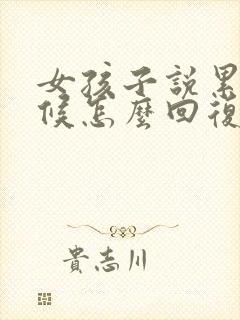 女孩子説累
候怎麼回復
貴志川